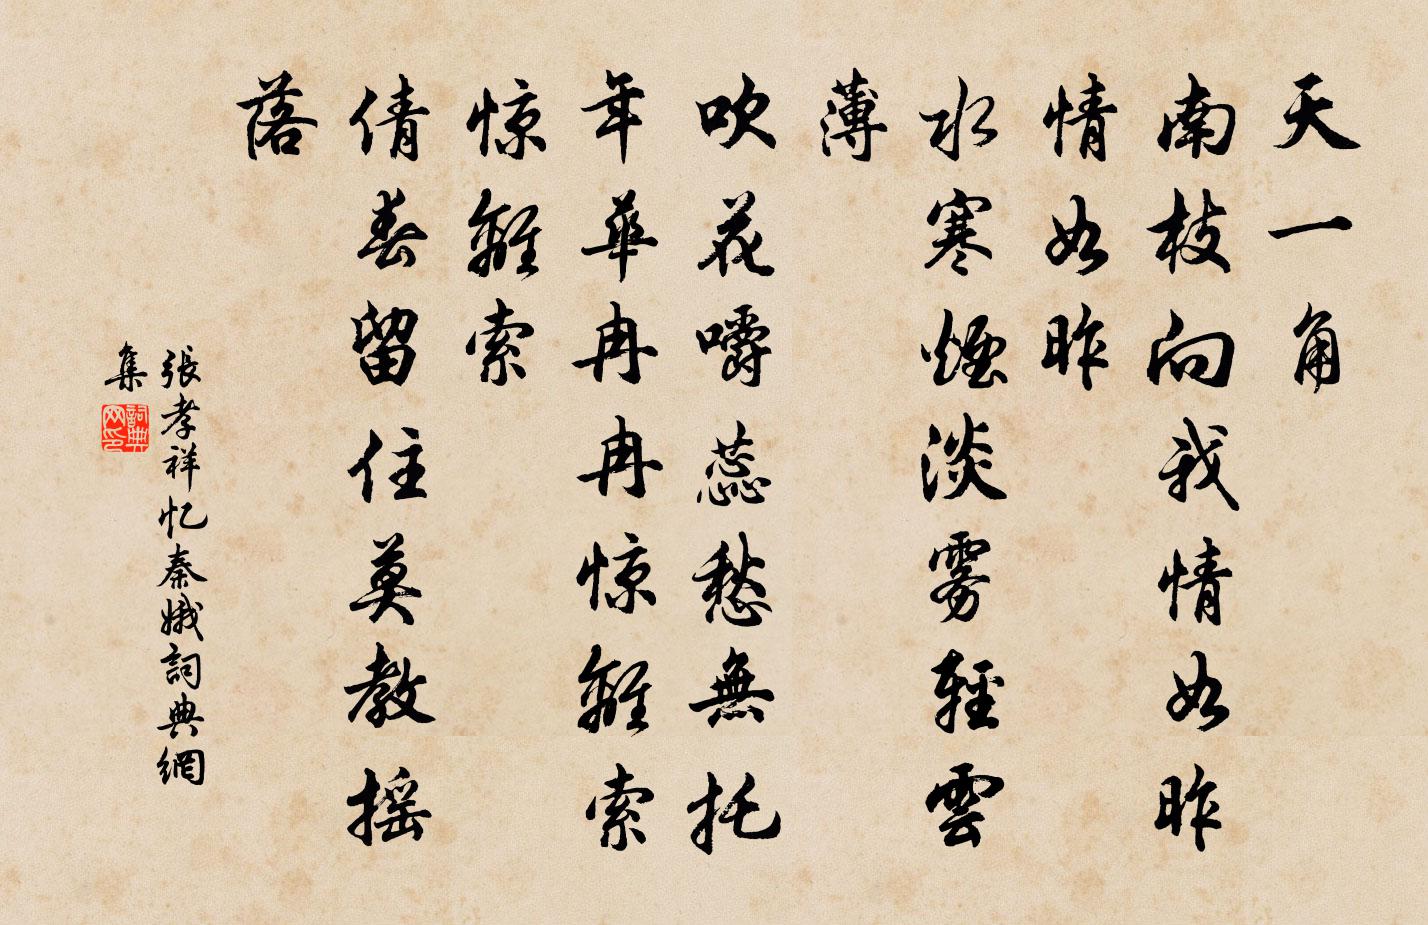 天一角
南枝向我情如昨
情如昨
水寒煙淡雾輕雲
薄
吹花嚼蕊愁無托
年華冉冉惊離索
惊離索
倩春留住莫教摇
落
張孝祥忆秦娥詞典網
集
詞典网印